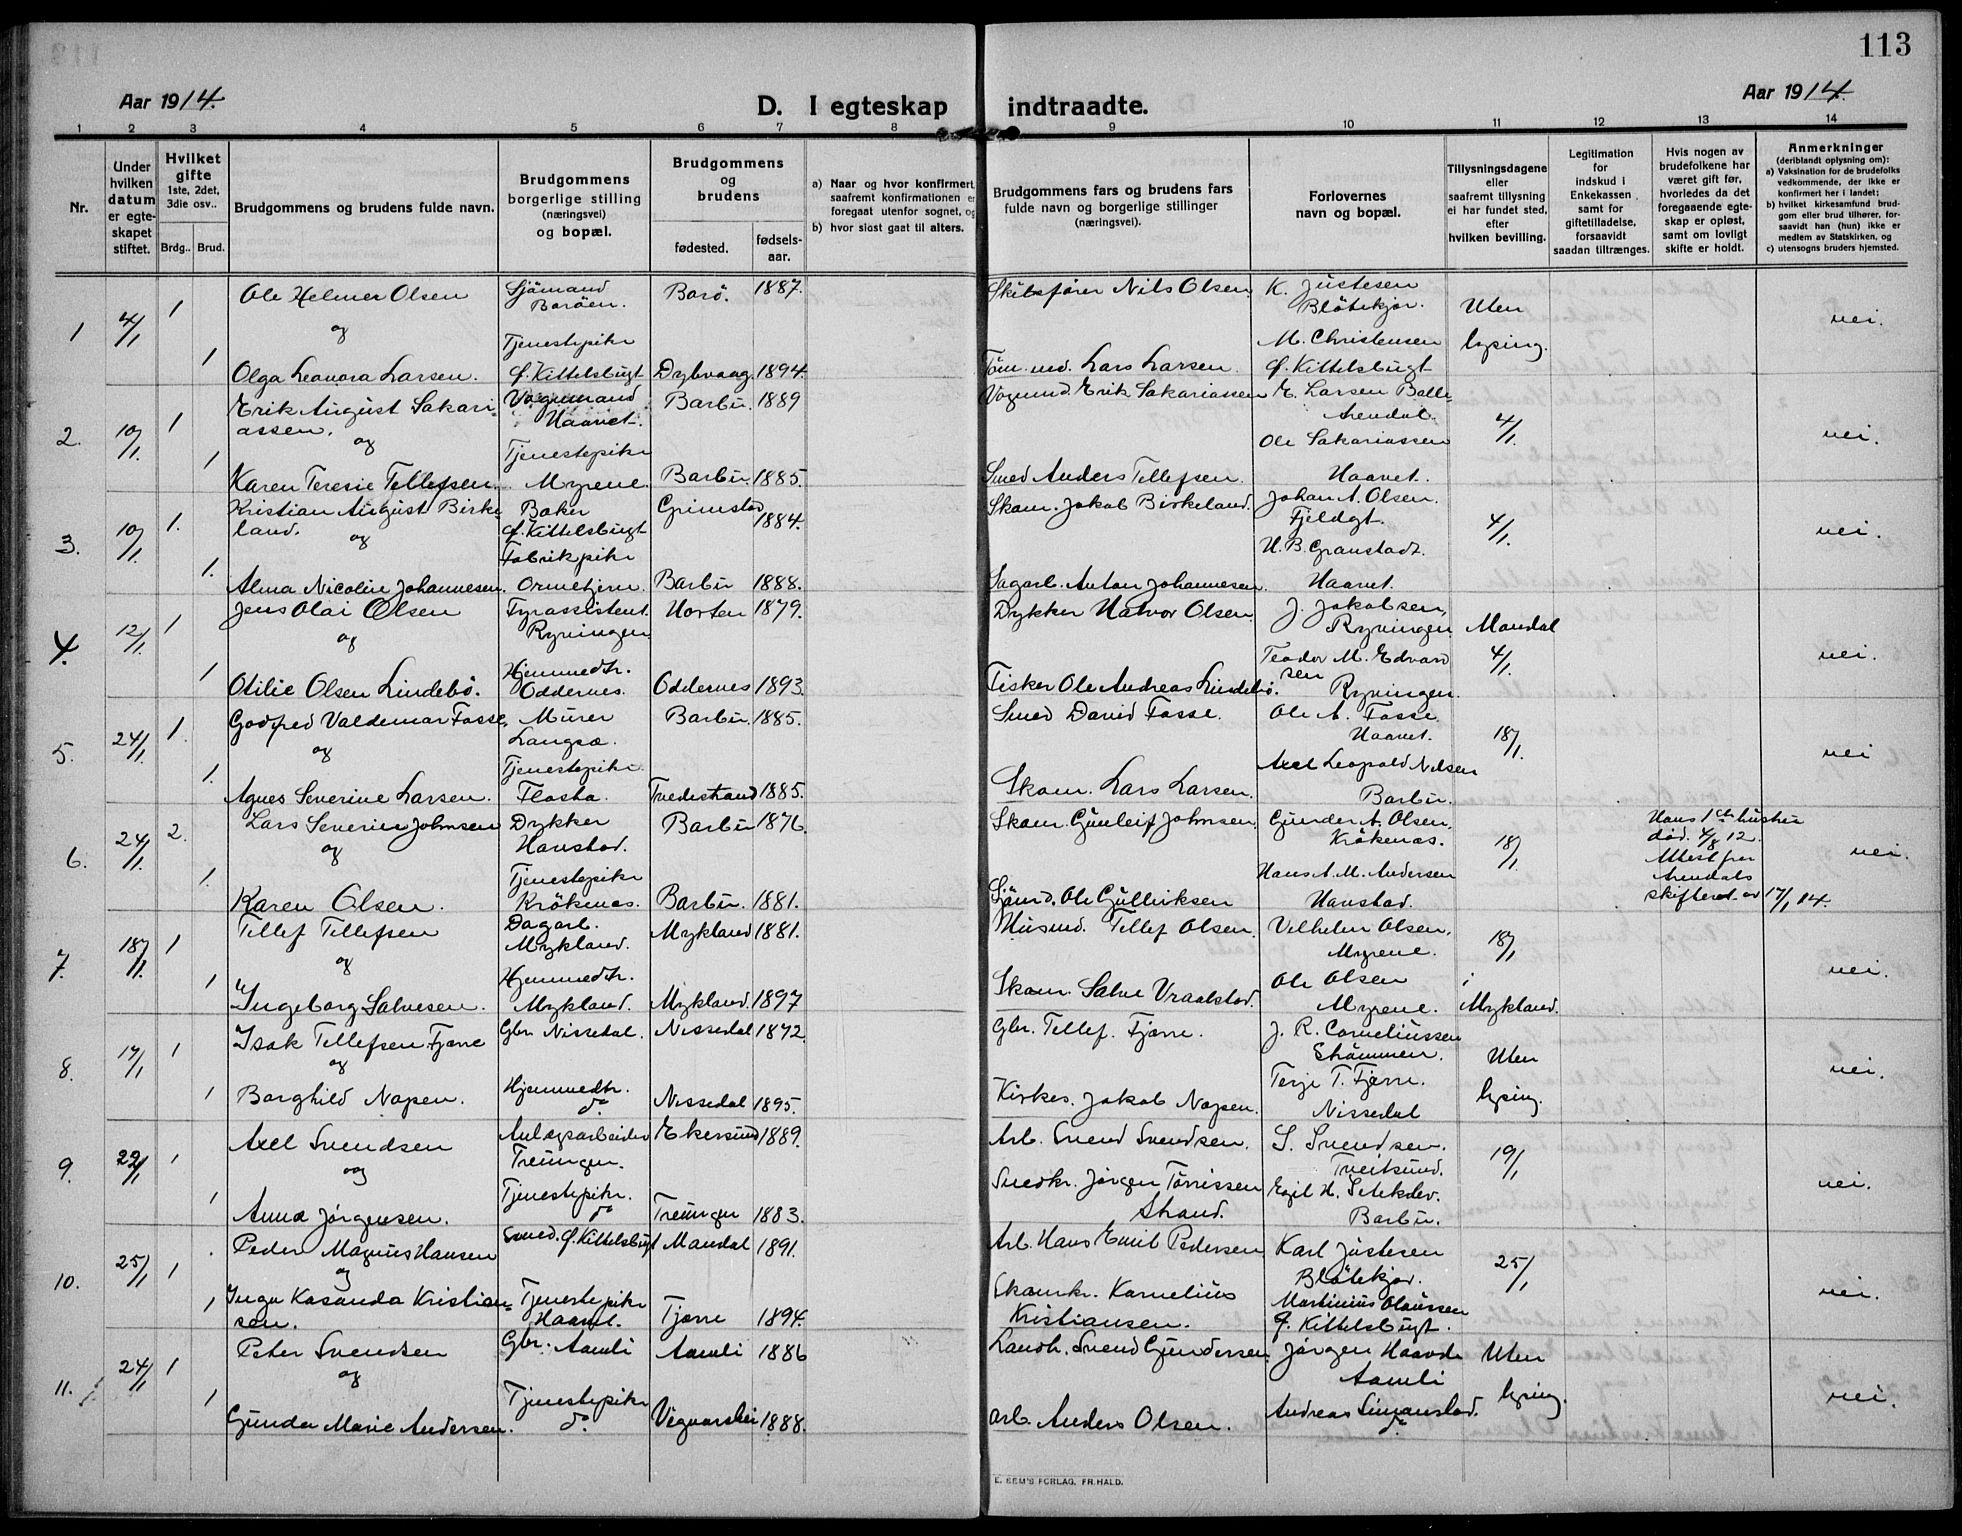 113
Aar 1914.
D. I egteskap indtraadte.
Aar 1914.
1 2 3 4 5 6 7 8 9 10 11 12 13 14
Nr.
Under hvilken datum er egteskapet stiftet.
Hvilket gifte 1ste, 2det, 3die osv..
Brdg.. Brud.
Brudgommens og brudens fulde navn.
Brudgommens borgerlige stilling (næringsvei) og bopæl.
Brudgommens og brudens
fødested. fødsels-aar.
a) Naar og hvor konfirmert, saafremt konfirmationen er foregaat utenfor sognet, og
b) hvor sidst gaat til alters.
Brudgommens fars og brudens fars fulde navn og borgerlige stillinger (næringsvei).
Forlovernes navn og bopæl.
Tillysningsdagene eller saafremt tillysning ei har fundet sted, efter hvilken bevilling.
Legitimation for indskud i Enkekassen samt for giftetilladelse, forsaavidt saadan tiltrænges.
Hvis nogen av brudefolkene har været gift før, hvorledes da det foregaaende egteskap er opløst, samt om lovligt skifte er holdt.
Anmerkninger (deriblandt oplysning om):
a) Vaksination for de brudefolks vedkommende, der ikke er konfirmert her i landet;
b) hvilket kirkesamfund brudgom eller brud tilhører, forsaavidt han (hun) ikke er medlem av Statskirken, og
c) utensogns bruders hjemsted.
1 4/1 1 Ole Helmer Olsen Sjömand Boröen. Borö. 1887. Skibsfører Nils Olsen. K. Justesen Blötekjær. Uten lysing. nei.
og
1 Olga Leonora Larsen. Tjenestepike G. Kittelsbugt Dybvaag. 1894. Töm.md. Lars Larsen. M. Christensen G. Kittelsbugt
2. 10/1 1 Erik August Sakariassen. Vognmand Haavet. Barbu. 1889 Vognmd. Erik Sakariassen E. Larsen Arendal. 4/1. nei.
og
1 Karen Teresie Tellefsen. Tjenestepike Myrene. Barbu 1885. Smed Anders Tellefsen. Ole Sakariassen Haavet.
3. 10/1 1. Kristian August Birkeland. Baker G. Kittelsbugt Grimstad 1884. Skom. Jakob Birkeland. Johan A. Olsen. Fjeldgt. 4/1. nei.
og
1. Alma Nicoline Johannesen. Fabrikpike Barbu 1888. Sagarb. Anton Johannesen. H. B. Granstadt. Haavet.
4. 12/1 1 Jens Olai Olsen Fyrassistent. Ryvingen Horten 1879. Dykker Halvor Olsen J. Jakobsen, Ryvingen Mandal 4/1. nei.
og
1 Otilie Olsen Lindebö. Hjemmedtr. Oddernes. Oddernes 1893. Fisker Ole Andreas Lindebö. Teodor M. Edvardsen Ryvingen.
5. 24/1 1. Godfred Valdemar Fosse, Murer Langsæ. Barbu. 1885. Smed David Fosse. Ole A. Fosse Haavet. 18/1. nei
og
1. Agnes Severine Larsen. Tjenestepike. Flosta. Tvedestrand 1885. Skom. Lars Larsen. Axel Leopold Nilsen Barbu.
6. 24/1. 2. Lars Severin Johnsen Dykker Hanstad. Barbu 1876 Skom. Gunleif Johnsen. Gunder A. Olsen. Krökenæs. 18/1 Hans 1ste hustru död 4/8 12. Attest fra Arendals skifteret av 17/1 14. nei.
og
1. Karen Olsen. Tjenestepike Krökenæs. Barbu. 1881. Sjömd. Ole Gulliksen Hans A. M. Andersen Hanstad.
7. 18/1. 1 Tellef Tellefsen Dagarb. Mykland. Mykland 1881. Husmd. Tellef Olsen. Velhelm Olsen. Myrene. 18/1 i Mykland. nei.
og
1 Ingeborg Salvesen. Hjemmedtr. Mykland. Mykland. 1897 Skom. Salve Vraalstad. Ole Olsen Myrene.
8. 17/1 1 Isak Tellefsen Fjære Gbr. Nissedal. Nissedal 1872. Gbr. Tellef. Fjære. J. R. Corneliussen Strömmen. Uten lysing. nei.
og
1 Borghild Napen. Hjemmedtr. do. Nissedal 1895. Kirkes. Jakob Napen. Terje T. Fjære. Nissedal
9. 22/1 1 Axel Svendsen Anlægsarbeider Treungen. Ekersund 1889. Arb. Svend Svendsen. S. Svendsen. Tveitsund. 19/1 nei.
og
1 Anna Jörgensen. Tjenestepike. do Treungen 1883. Snedkr. Jörgen Tönnissen Strand. Egil H. Barbu.
10. 25/1 1 Peder Magnus Hansen Smed. G. Kittelsbugt Mandal 1891. Arb. Hans Emil Pedersen Karl Justesen Blötekjær. 25/1 nei.
og
1 Inga Kasanda Kristiansen. Tjenestepike Haavet. Tjörne 1894. Skomkr. Kornelius Kristiansen. Martinius Olaussen G. Kittelsbugt.
11. 24/1 1 Peter Svendsen Gbr. Aamli Aamli 1886 Landh. Svend Gundersen. Jörgen Haavde Aamli Uten lysing. nei.
og
1 Gunda Marie Andersen. Tjenestepike do. Vegaarshei 1888. Arb. Anders Olsen. Andreas Simonstad. do.
E. SEM'S FORLAG, FR.HALD.